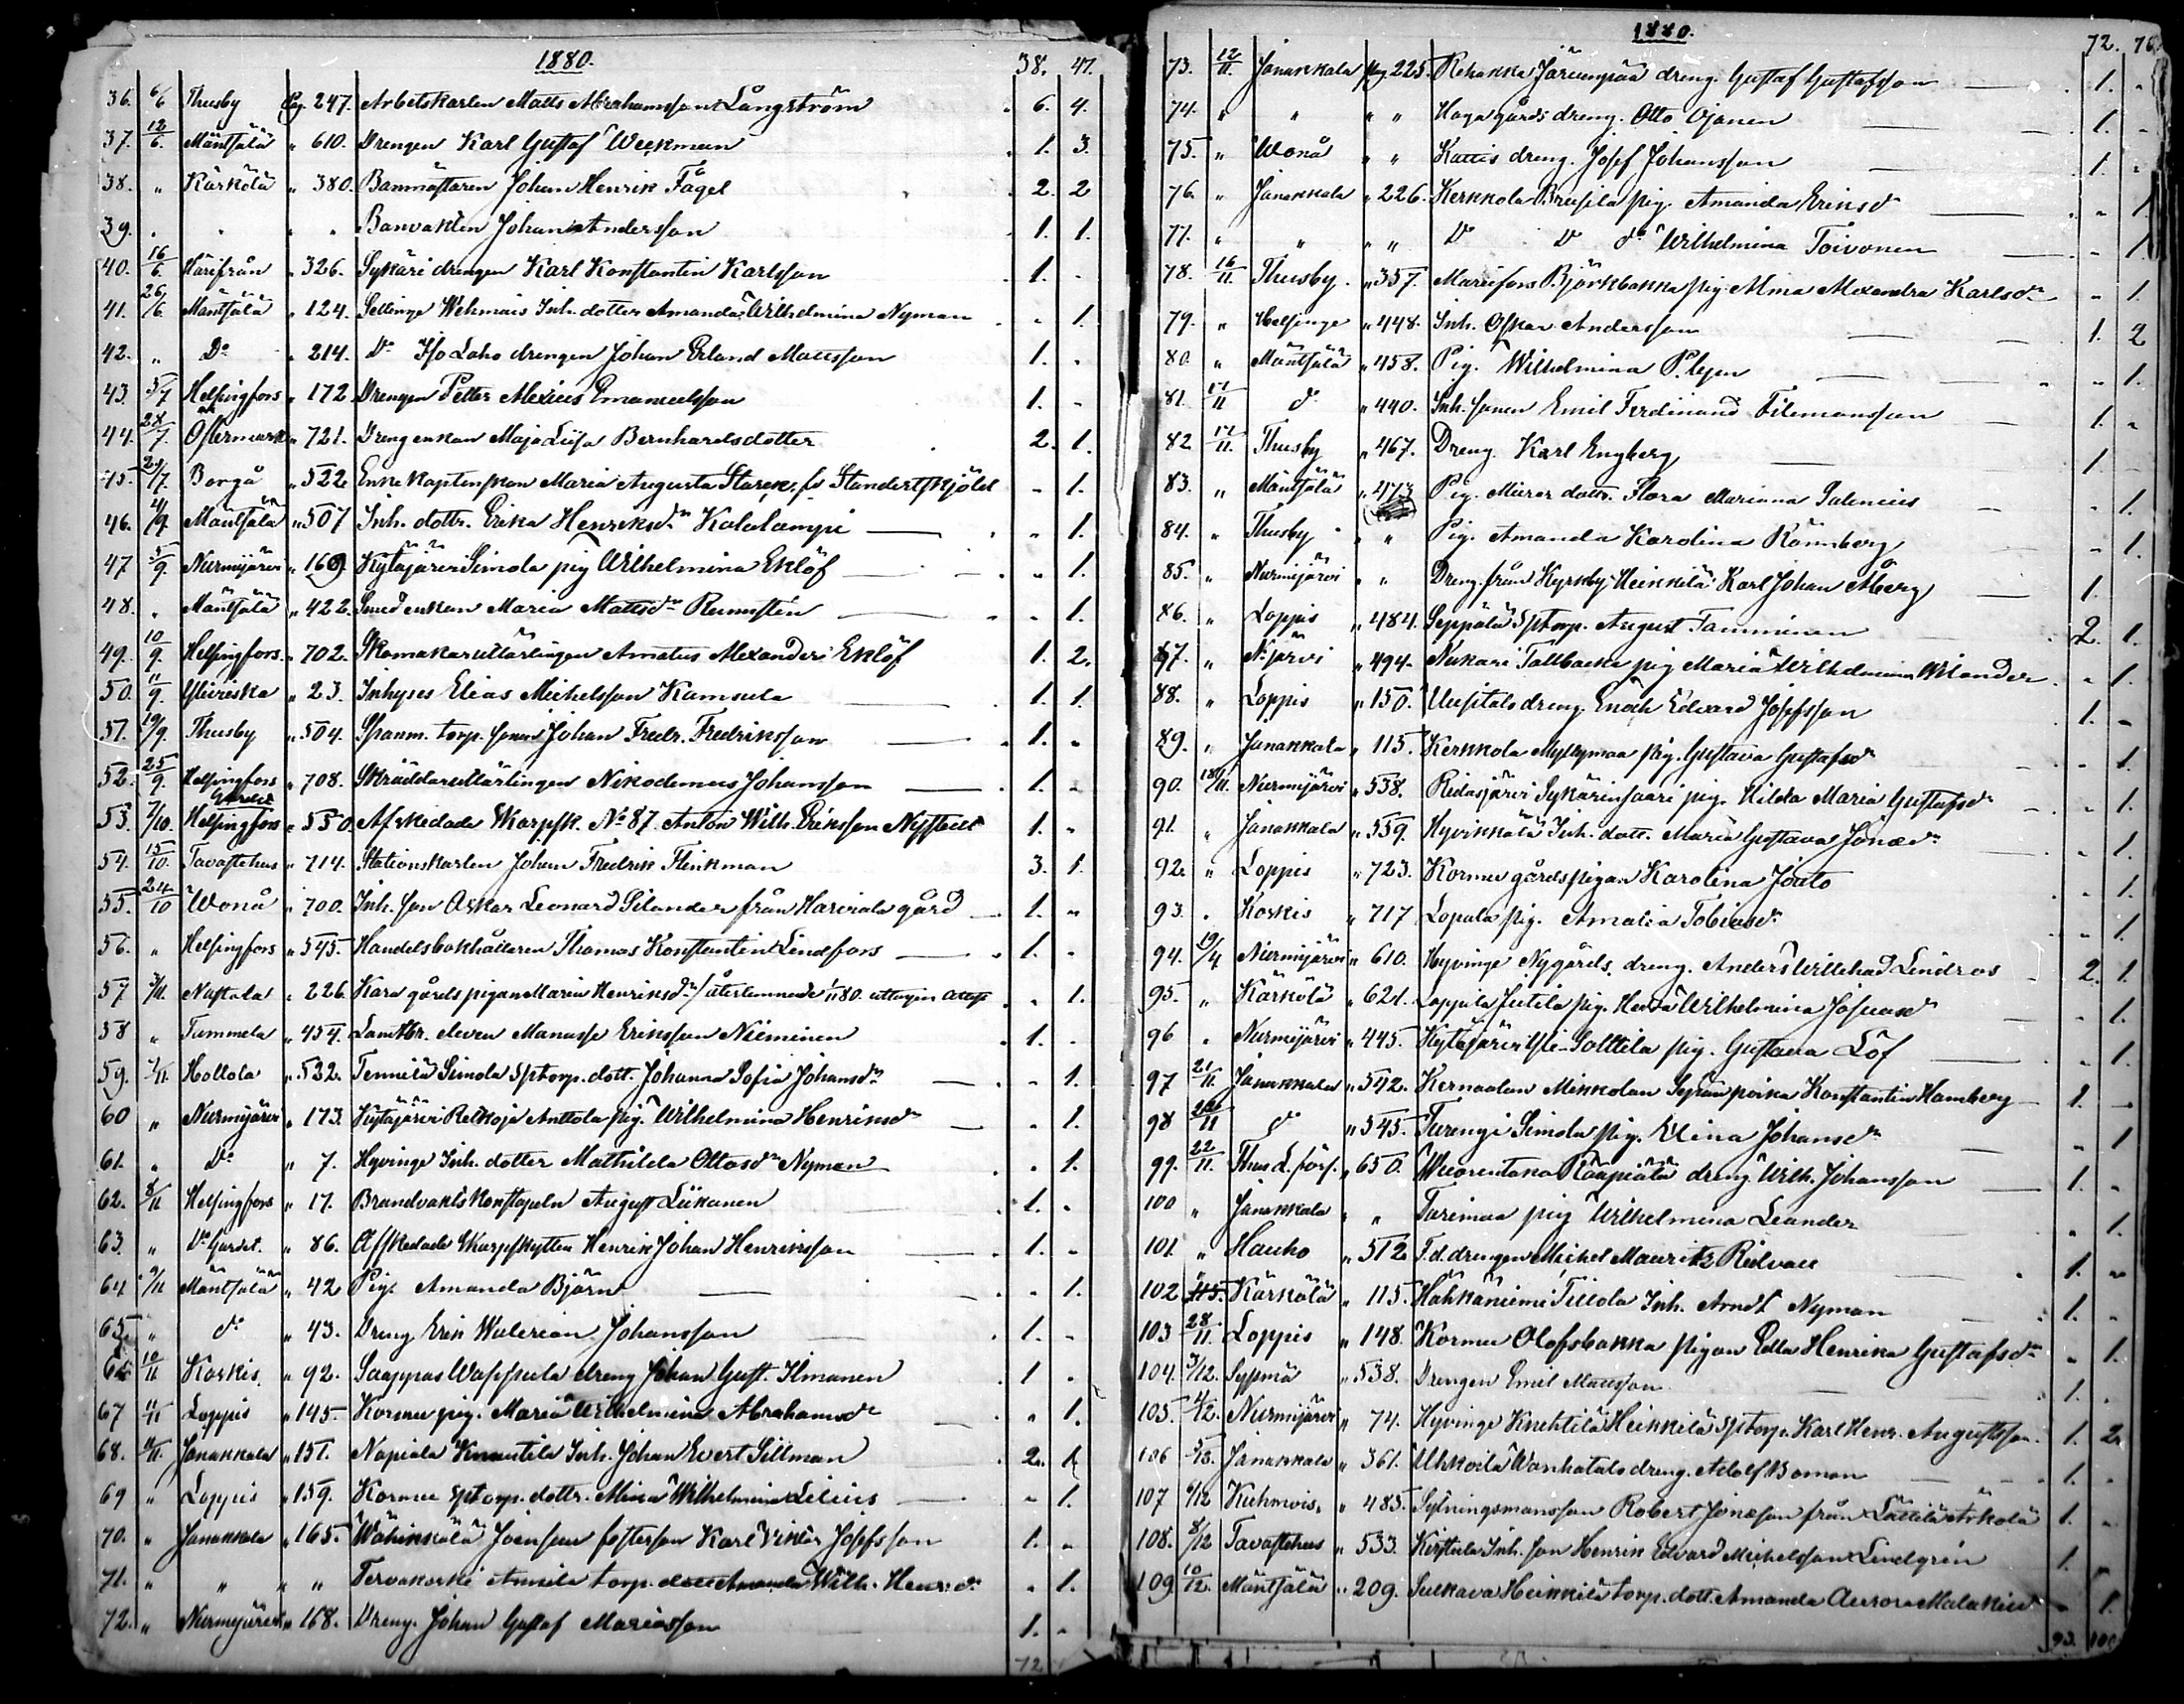 1880. 38. 47.
36. 6/6 Thusby Pag. 247. Arbetskarlen Matts Abrahamsson Långström 6. 4.
37. 12/6. Mäntsälä " 610. Drengen Karl Gustaf Weckman 1. 3.
38. " Kärkölä " 380. Banmästaren Johan Henrik Fågel 2. 2
39. " " " " Banvakten Johan Andersson 1. 1.
40. 16/6. Härifrån " 326. Sykäri drengen Karl Konstantin Karlsson 1. -
41. 26/6 Mäntsälä " 124. Sellinge Wehmais Inh. dotter Amanda Wilhelmina Nyman - 1.
42. " Do " 214. Do Iso Laho drengen Johan Erland Mattsson 1. -
43. 5/7 Helsingfors " 172 Drengen Petter Alexius Emanuelsson 1. -
44. 28/7. Östermark " 721. Drengenkan Maja Lisa Bernhardsdotter 2. 1.
45. 29/7. Borgå " 522 Enke Kaptenskan Maria Augusta Starck, fö Standertskjöld - 1.
46. 4/9. Mäntsälä " 507 Inh. dottr. Erika Henriksdr Kalalampi - 1.
47 5/9. Nurmijärvi " 169. Kytäjärvi Simola pig Wilhelmina Eklöf - 1.
48. " Mäntsälä " 422. Smedenkan Maria Mattsdr Rumstén - 1.
49. 10/9. Helsingfors " 702. Skomakareutlärlingen Amatus Alexander Eklöf 1. 2.
50. 11/9. Ylivieska " 23. Inhyses Elias Michelsson Kamsula 1. 1.
51. 19/9. Thusby " 504. Spranm. torp. sonen Johan Fredr. Fredriksson 1. -
52. 25/9. Helsingfors " 708. Skräddareutlärlingen Nikodemus Johansson 1. -
53. 7/10. Helsingfors Gardet " 550. Afskedade Skarpsk. No 87. Anton Wilh. Eriksson Nystedt 1. -
54. 15/10. Tavastehus " 714. Stationskarlen Johan Fredrik Flinkman 3. 1.
55. 24/10 Wonå " 700. Inh. son Oskar Leonard Silander från Harviala gård 1. -
56. " Helsingfors " 545. Handelsbokhållaren Thomas Konstantin Lindfors 1. -
57 3/11. Nastola " 226. Kara gårds pigan Maria Henriksdr / återlemnade 1/11 80. uttagin attest - 1.
58 " Tammela " 454. Lantbr. eleven Manasse Eriksson Nieminen 1. -
59. 7/11. Hollola " 522. Tennilä Simola Sptorp. dott. Johanna Sofia Johansdr - 1.
60 " Nurmijärvi " 173. Kytäjärvi Relkoja Anttola pig. Wilhelmina Henriksdr - 1.
61. " Do " 7. Hyvinge Inh. dotter Mathilda Ottosdr Nyman - 1.
62. 8/11 Helsingfors " 17. Brandvakts Konstapeln August Liikanen 1. -
63. " Do Gardet. " 86. Afskedade Skarpskytten Henrik Johan Henriksson 1. -
64 9/11 Mäntsälä " 42 Pig. Amanda Björn - 1.
65. " do " 43. Dreng Erik Walerian Johansson 1. -
66 10/11 Koskis. " 92. Saappas Waskula dreng Johan Gust. Ilmanen 1 -
67 11/11 Loppis " 145. Kormu pig. Maria Wilhelmina Abrahamsdr " 1.
68. 11/11. Janakkala " 151. Napiala Knuutila Inh. Johan Evert Sillman 2. 1.
69 " Loppis " 159. Kormu Sptorp. dottr. Mina Wilhelmina Lilius - 1.
70. " Janakkala " 165. Wähinkälä Joensuu fosterson Karl Viktor Josefsson 1. -
71. " " " " Tervakoski Annila torp. dott. Amanda Wilh. Henr. dr - 1.
72. " Nurmijärvi " 168. Dreng. Johan Gustaf Mariasson 1. -
72
1880. 72. 76
73. 12/11. Janakkala pag 225. Rehakka Järvenpää dreng. Gustaf Gustafsson 1. -
74. " " " " Haga gårds dreng. Otto Ojanen 1. -
75. " Wonå " " Kattis dreng. Josef Johansson 1. -
76. " Janakkala " 226. Kerkkola Brusila pig. Amanda Eriksdr " 1.
77. " " " " Do Do do Wilhelmina Toivonen - 1.
78. 16/11. Thusby " 357. Mariefors Björkbacka pig. Alma Alexandra Karlsdr " 1.
79. " Helsinge " 448. Inh. Oskar Andersson 1. 2
80. " Mäntsälä " 458. Pig. Wilhelmina Plejen " 1.
81. 17/11 do " 440. Inh. sonen Emil Ferdinand Filemonsson 1. -
82 17/11. Thusby " 467. Dreng. Karl Engberg 1. -
83. " Mäntsälä " 473 Pig. Murar dottr. Flora Marianna Salenius - 1.
84. " Thusby " " Pig. Amanda Karolina Rönnberg - 1.
85. " Nurmijärvi " " Dreng. från Kyrkby Heikkilä Karl Johan Åberg 1.
86. " Loppis " 484. Seppälä Sptorp. August Tamminen 2. 1.
87. " N.järvi " 494. Nukari Tallbacka pig Maria Wilhelmina Wilander - 1.
88. " Loppis " 150. Uusitalo dreng Enoch Edvard Josefsson 1. -
89. " Janakkala " 115. Kerkkola Myllymaa pig. Gustava Gustafsdr - 1.
90. 18/11. Nurmijärvi " 538. Ridasjärvi Sykärinsaari pig. Hilda Maria Gustafsdr - 1.
91. " Janakkala " 559. Hyvikkälä Inh. dott. Maria Gustava Jonasdr - 1.
92. " Loppis " 723. Kormu gårdspigan Karolina Jouto - 1.
93. " Koskis " 717 Lopula pig. Amalia Tobiasdr - 1.
94. 19/4 Nurmijärvi " 610. Hyvinge Nygårds dreng. Anders Willehad Lindroos 2. 1.
95. " Kärkölä " 621. Loppila Jutila pig. Henda Wilhelmina Josuasdr - 1.
96 " Nurmijärvi " 445. Kytäjärvi Yli-Solttila pig. Gustava Löf - 1.
97 21/11. Janakkala " 542. Kernaalan Mikkolan Sepänpoika Konstantin Hamberg 1. -
98 22/11 do " 545. Turengi Simola pig. Elina Johansdr - 1
99. 22/11. Thus L. förs. " 650. Wuorentaka Rääpiälä dreng Wilh. Johansson 1. -
100 " Janakkala " " Tarinmaa pig Wilhelmina Leander - 1.
101. " Hauho " 512 F.d. drengen Michel Mauritz Ridvall 1. -
102 Kärkölä " 115. Hähkäniemi Tillola Inh. Arndt Nyman 1. -
103 28/11. Loppis " 148. Kormu Olofsbacka pigan Edla Henrika Gustafsdr " 1.
104. 3/12. Sysmä " 538. Drengen Emil Mattsson 1. -
105. 4/12. Nurmijärvi " 74. Hyvinge Knehtilä Heikkilä Sptorp. Karl Henr. Augustsson 1. 2.
106 5/12. Janakkala " 361. Uhkoila Wanhatalo dreng. Adolf Boman 1. -
107 6/12 Kuhmois. " 483. Sytningsmansson Robert Jonasson från Lättilä Arkola 1. -
108. 8/12 Tavastehus " 533. Kirstula Inh. son Henrik Edvard Michelsson Lindgrén 1. -
109 10/12. Mäntsälä " 209. Sulkava Heikkilä torp. dott. Amanda Aurora Malakiasdr - 1.
93. 100